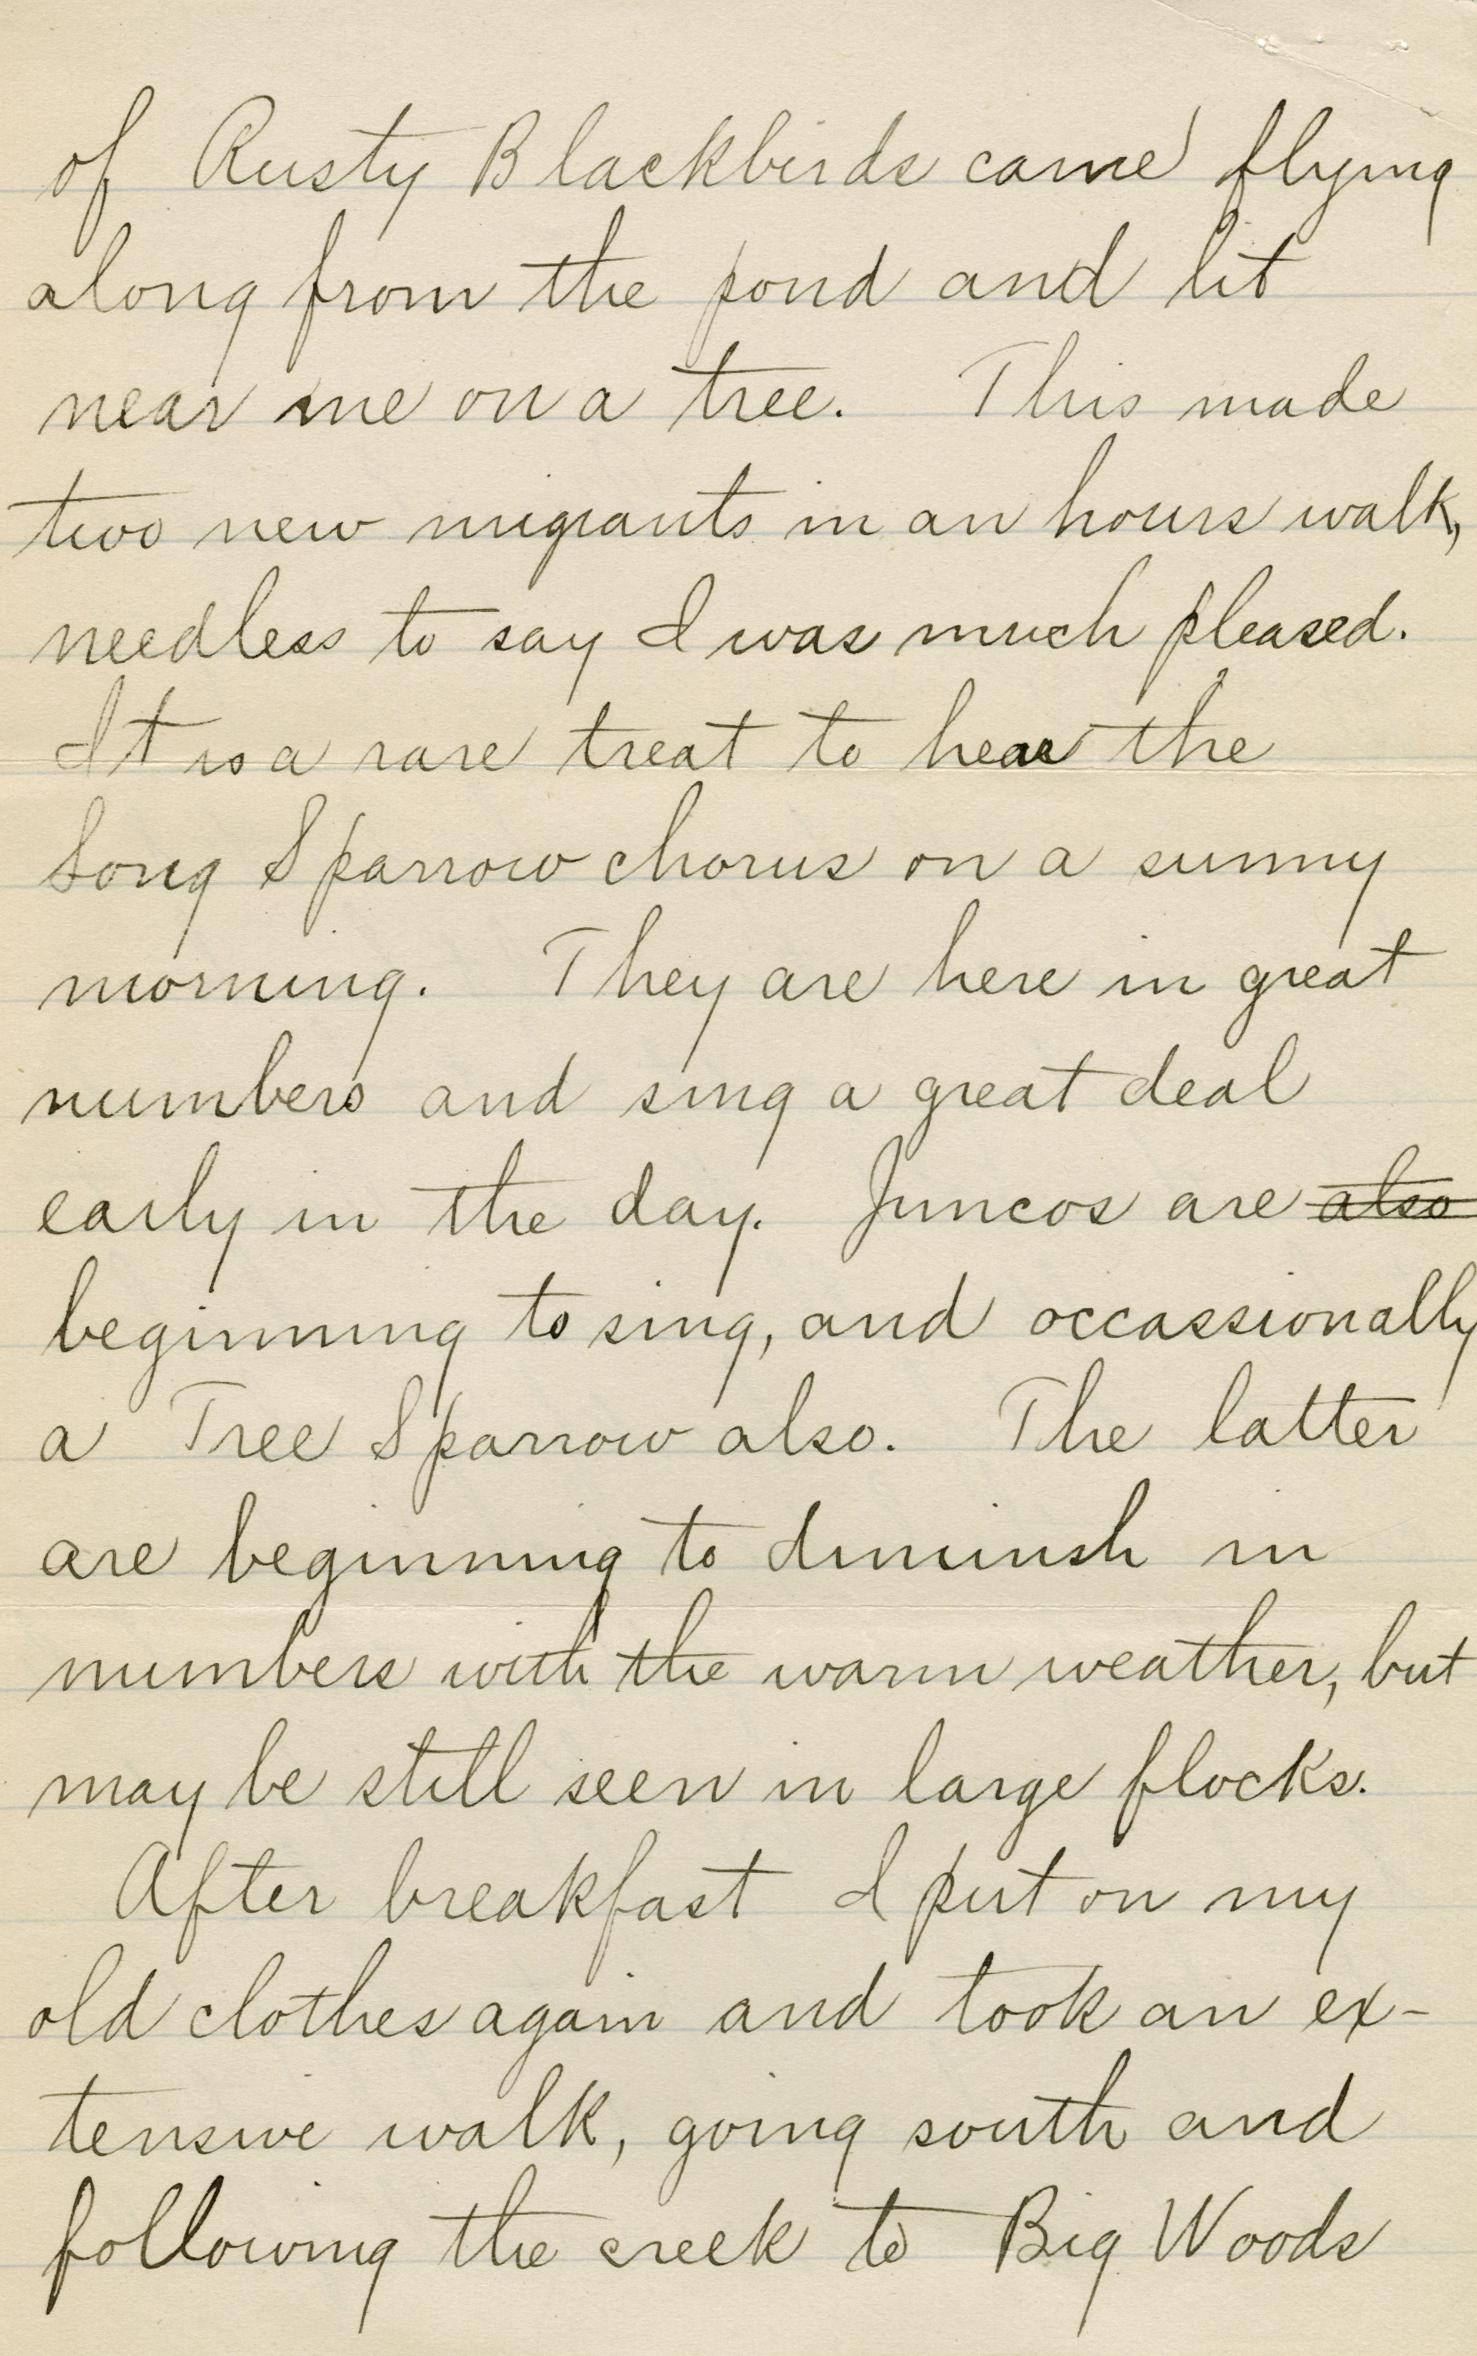 of Rusty Blackbirds came flying
along from the pond and lit
near me on a tree. This made
two new migrants in an hours walk,
needless to say I was much pleased.
It is a rare treat to hear the
Song Sparrow chorus on a sunny
morning. They are here in great
numbers and sing a great deal
early in the day. Juncos are also
beginning to sing, and occassionally
a Tree Sparrow also. The latter
are beginning to diminish in
numbers with the warm weather, but
may be still seen in large flocks.
After breakfast I put on my
old clothes again and took an ex-
tensive walk, going south and
following the creek to Big Woods